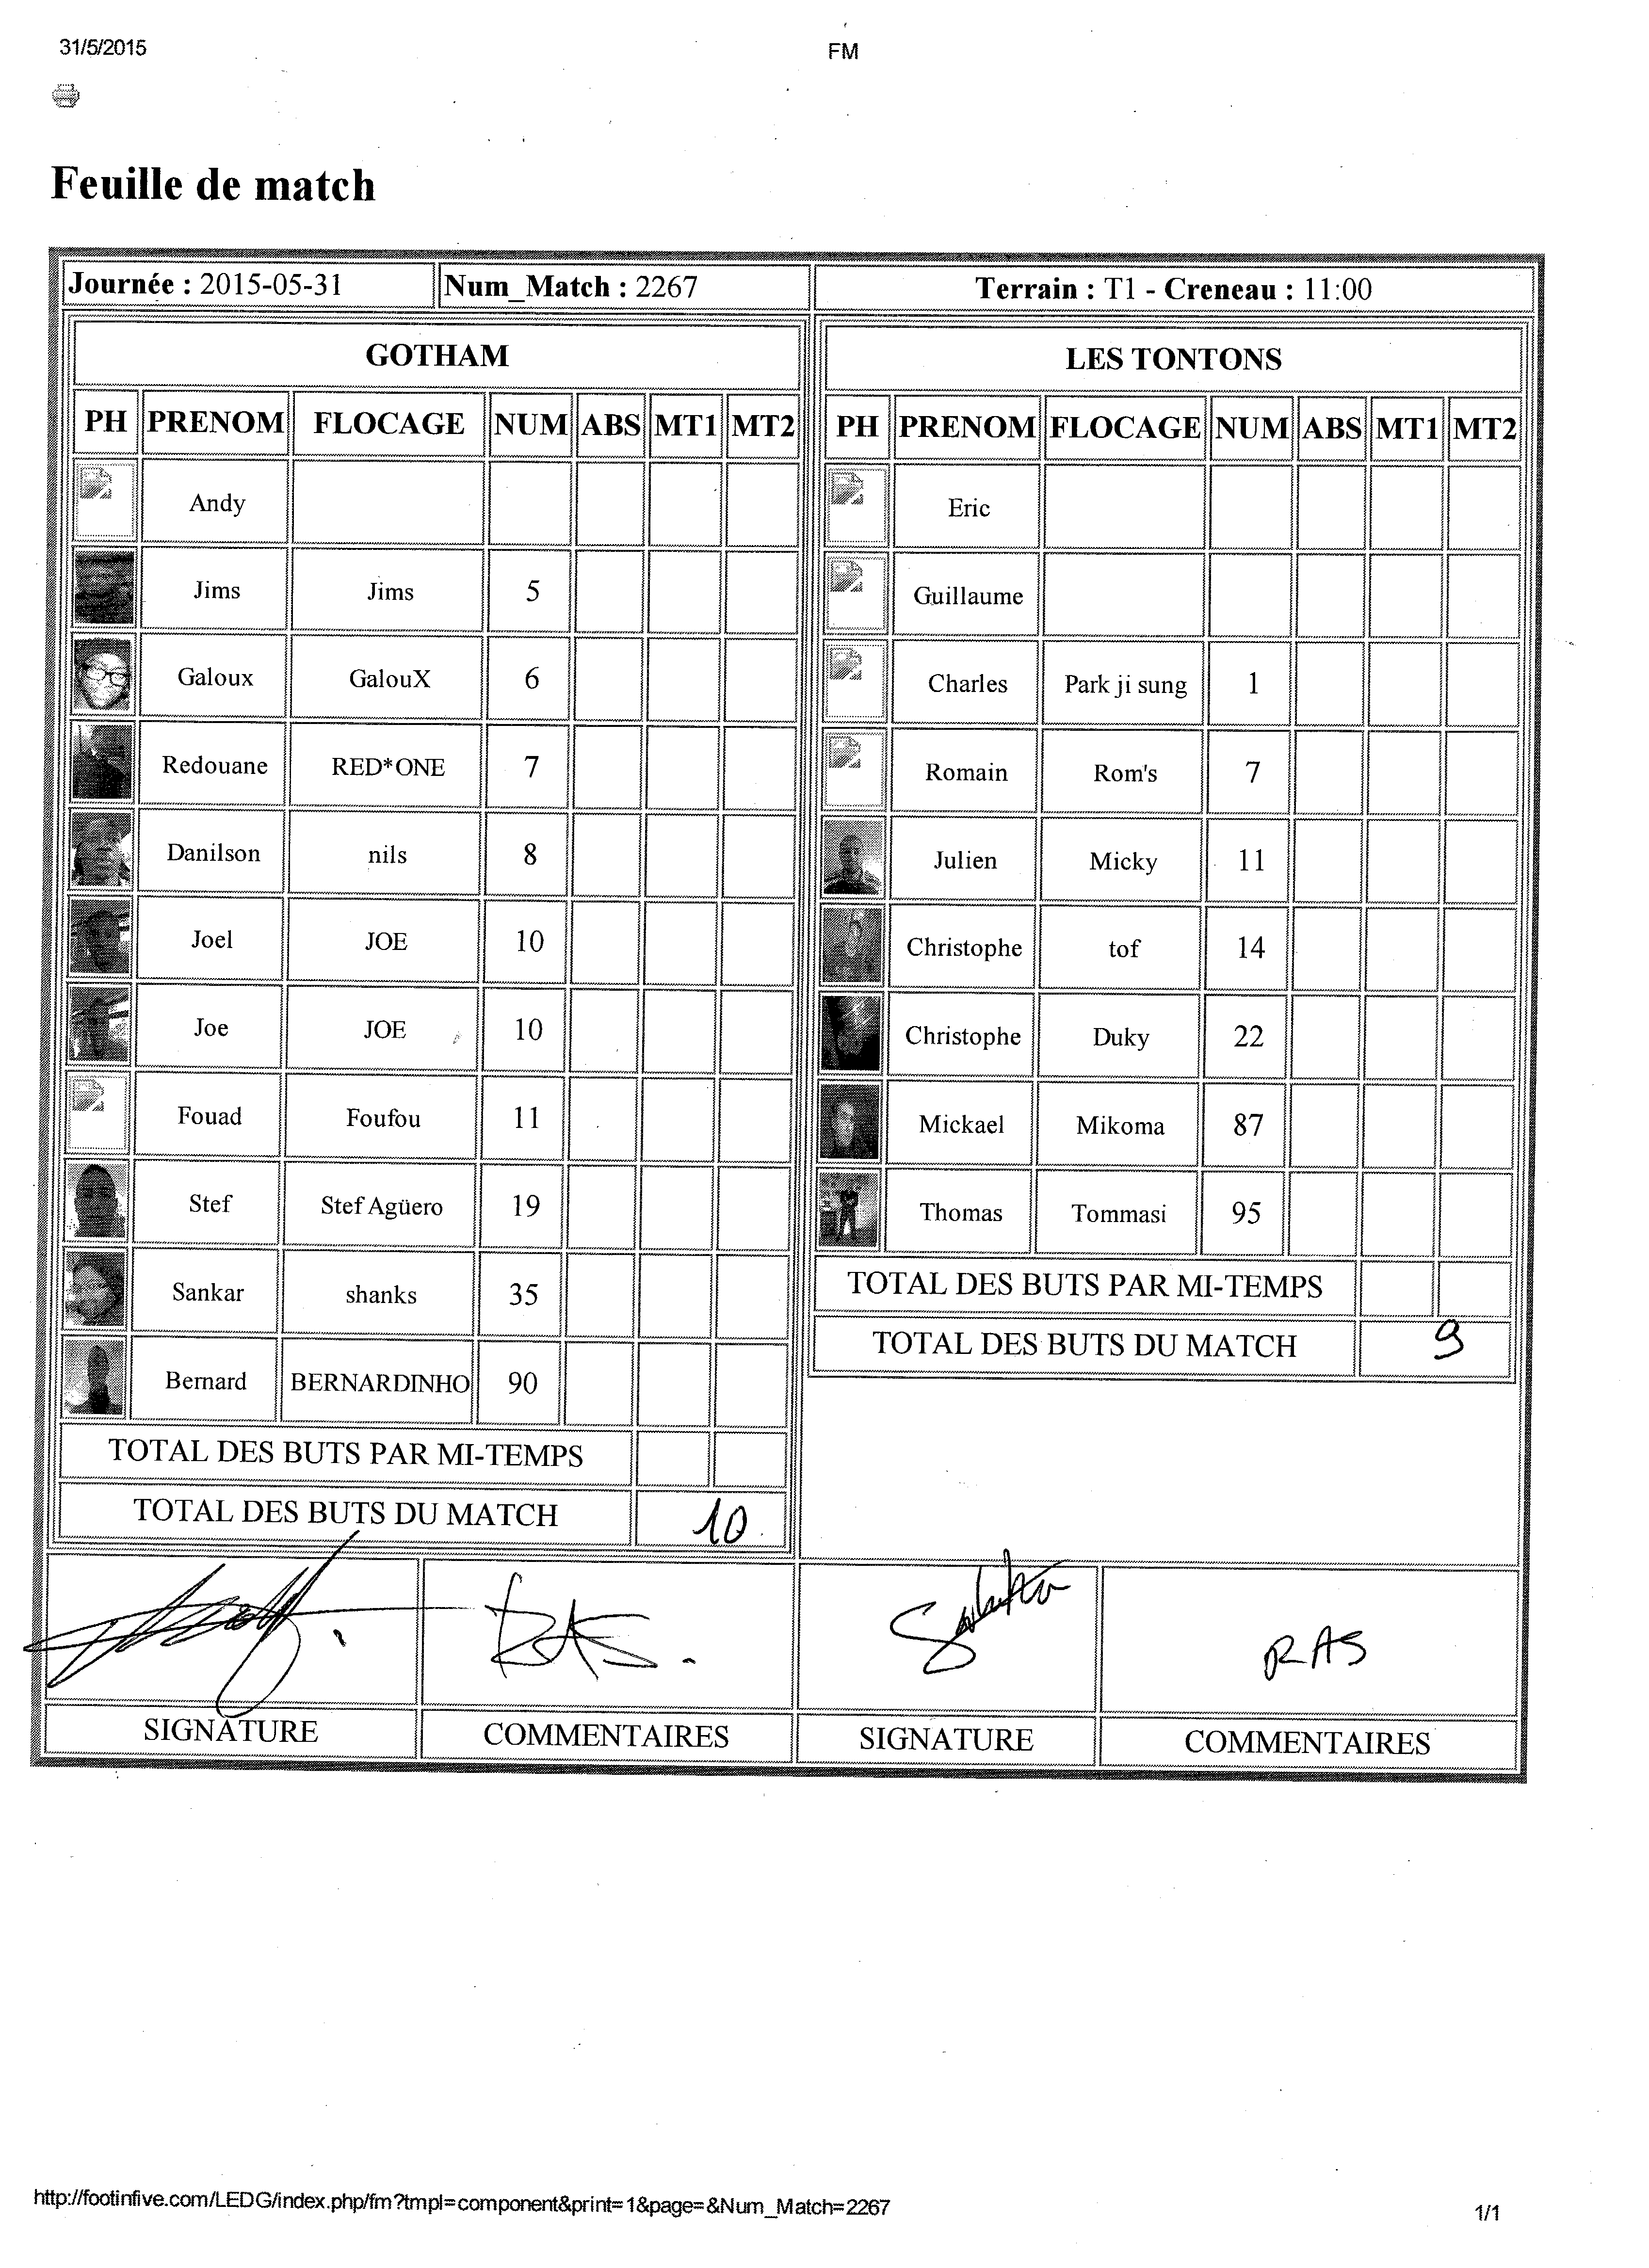 31/5/2015 FM
Feuille de match
Journée : 2015-05-31 Num_Match : 2267 Terrain : T1 - Creneau : 11:00
GOTHAM
PH PRENOM FLOCAGE NUM ABS MT1 MT2
Andy
Jims Jims 5
Galoux GalouX 6
Redouane RED*ONE 7
Danilson nils 8
Joel JOE 10
Joe JOE 10
Fouad Foufou 11
Stef Stef Agüero 19
Sankar shanks 35
Bernard BERNARDINHO 90
TOTAL DES BUTS PAR MI-TEMPS
TOTAL DES BUTS DU MATCH 10
LES TONTONS
PH PRENOM FLOCAGE NUM ABS MT1 MT2
Eric
Guillaume
Charles Park ji sung 1
Romain Rom's 7
Julien Micky 11
Christophe tof 14
Christophe Duky 22
Mickael Mikoma 87
Thomas Tommasi 95
TOTAL DES BUTS PAR MI-TEMPS
TOTAL DES BUTS DU MATCH 9
RAS. RAS
SIGNATURE COMMENTAIRES SIGNATURE COMMENTAIRES
http://footinfive.com/LEDG/index.php/fm?tmpl=component&print=1&page=&Num_Match=2267 1/1